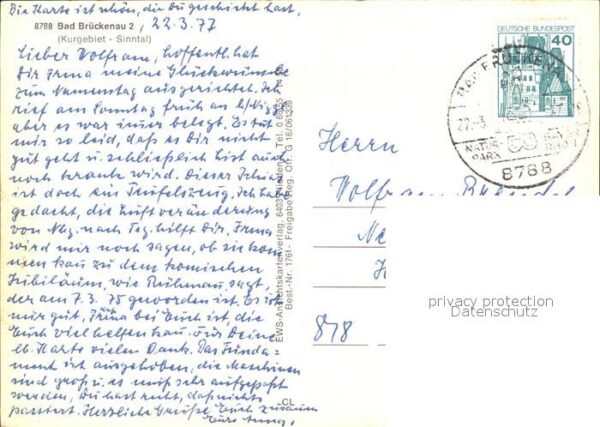 Die Karte ist schön, die Du geschickt hast.
8788 Bad Brückenau 2, 22.3.77
(Kurgebiet - Sinntal)
Lieber Wolfram, hoffentl. hat
Dir Irma meine Glückwünsche
zum Namenstag ausgerichtet. Ich
rief am Sonntag früh an
aber es war immer belegt. Es tut
mir so leid, daß es Dir nicht
gut geht u. schließlich bist auch
noch krank wird. Dieser
ist doch ein Teufelszeug. Ich habe
gedacht, die Luftveränderung
von Nbg. nach hilft Dir, Irma
wird mir noch sagen, ob sie kom
men kann zu dem komischen
Jubiläum, wie Rühmann sagt,
der am 7.3. 75 geworden ist. Es ist
nur gut, Irma bei Euch ist, die
Euch viel helfen kann. Für Deine
lb. Karte vielen Dank. Das Funda=
ment ist ausgehoben, die Maschinen
sind groß u. es muß sehr aufgepaßt
werden, Du hast recht, daß nichts
passiert. Herzliche Grüße Euch zusammen
Eure
EWS-Ansichtskartenverlag, 6403 Flieden 1, Tel. 0 66 55
Best.-Nr. 1761 - Freigabe Reg. Ofr. G 16/061339
CL
DEUTSCHE BUNDESPOST
40
BAD BRÜCKENAU
22.-3.
NATUR-
PARK
8788
Herrn
Wolfram
878
privacy protection
Datenschutz